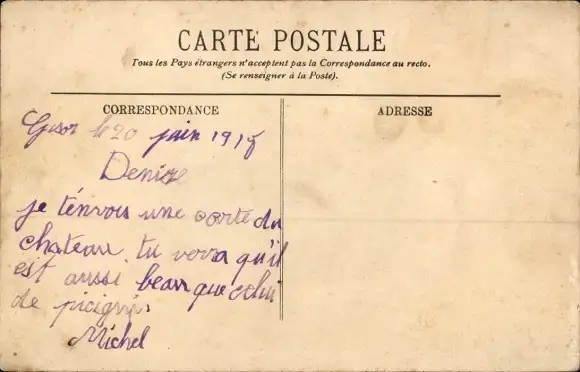 CARTE POSTALE
Tous les Pays étrangers n'acceptent pas la Correspondance au recto.
(Se renseigner à la Poste).
CORRESPONDANCE
ADRESSE
Gisor le 20 juin 191
Denise
je ténvois une carte du
chateau. tu verra qu'il
est aussi beau que celui
de
Michel